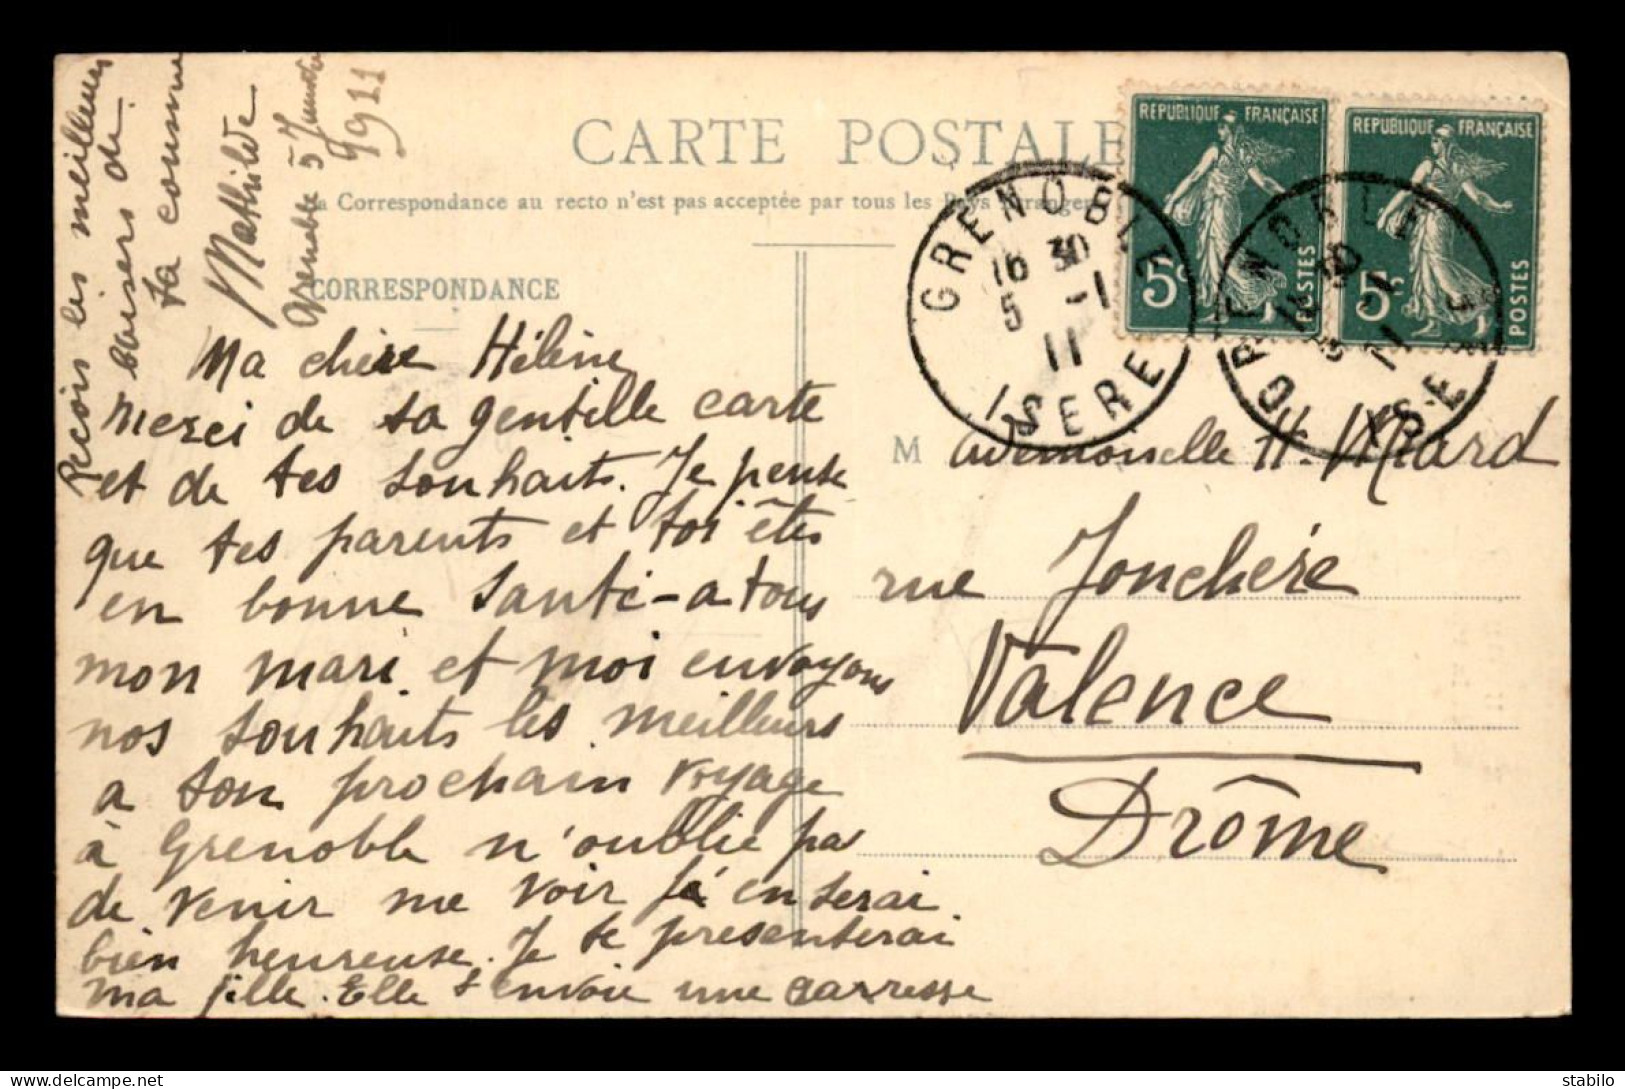 CARTE POSTALE
la Correspondance au recto n'est pas acceptée par tous les Pays étrangers
CORRESPONDANCE
Ma chère Hélène
merci de ta gentille carte
et de tes souhaits. Je pense
que tes parents et toi êtes
en bonne santé - a tous
mon mari et moi envoyons
nos souhaits les meilleurs
a ton prochain voyage
à Grenoble n'oublie pas
de venir me voir j'en serai
bien heureuse. Je te présenterai
ma fille. Elle t'envoie une carresse
Reçois les meilleurs
baisers de
ta cousine
Mathilde
Grenoble 5 Janvier
1911
REPUBLIQUE FRANÇAISE
5c POSTES
REPUBLIQUE FRANÇAISE
5c POSTES
GRENOBLE
16 30
5 -1
11
ISERE
GRENOBLE
ISERE
M ademoiselle H. Miard
rue Jonchère
Valence
Drôme
stabilo